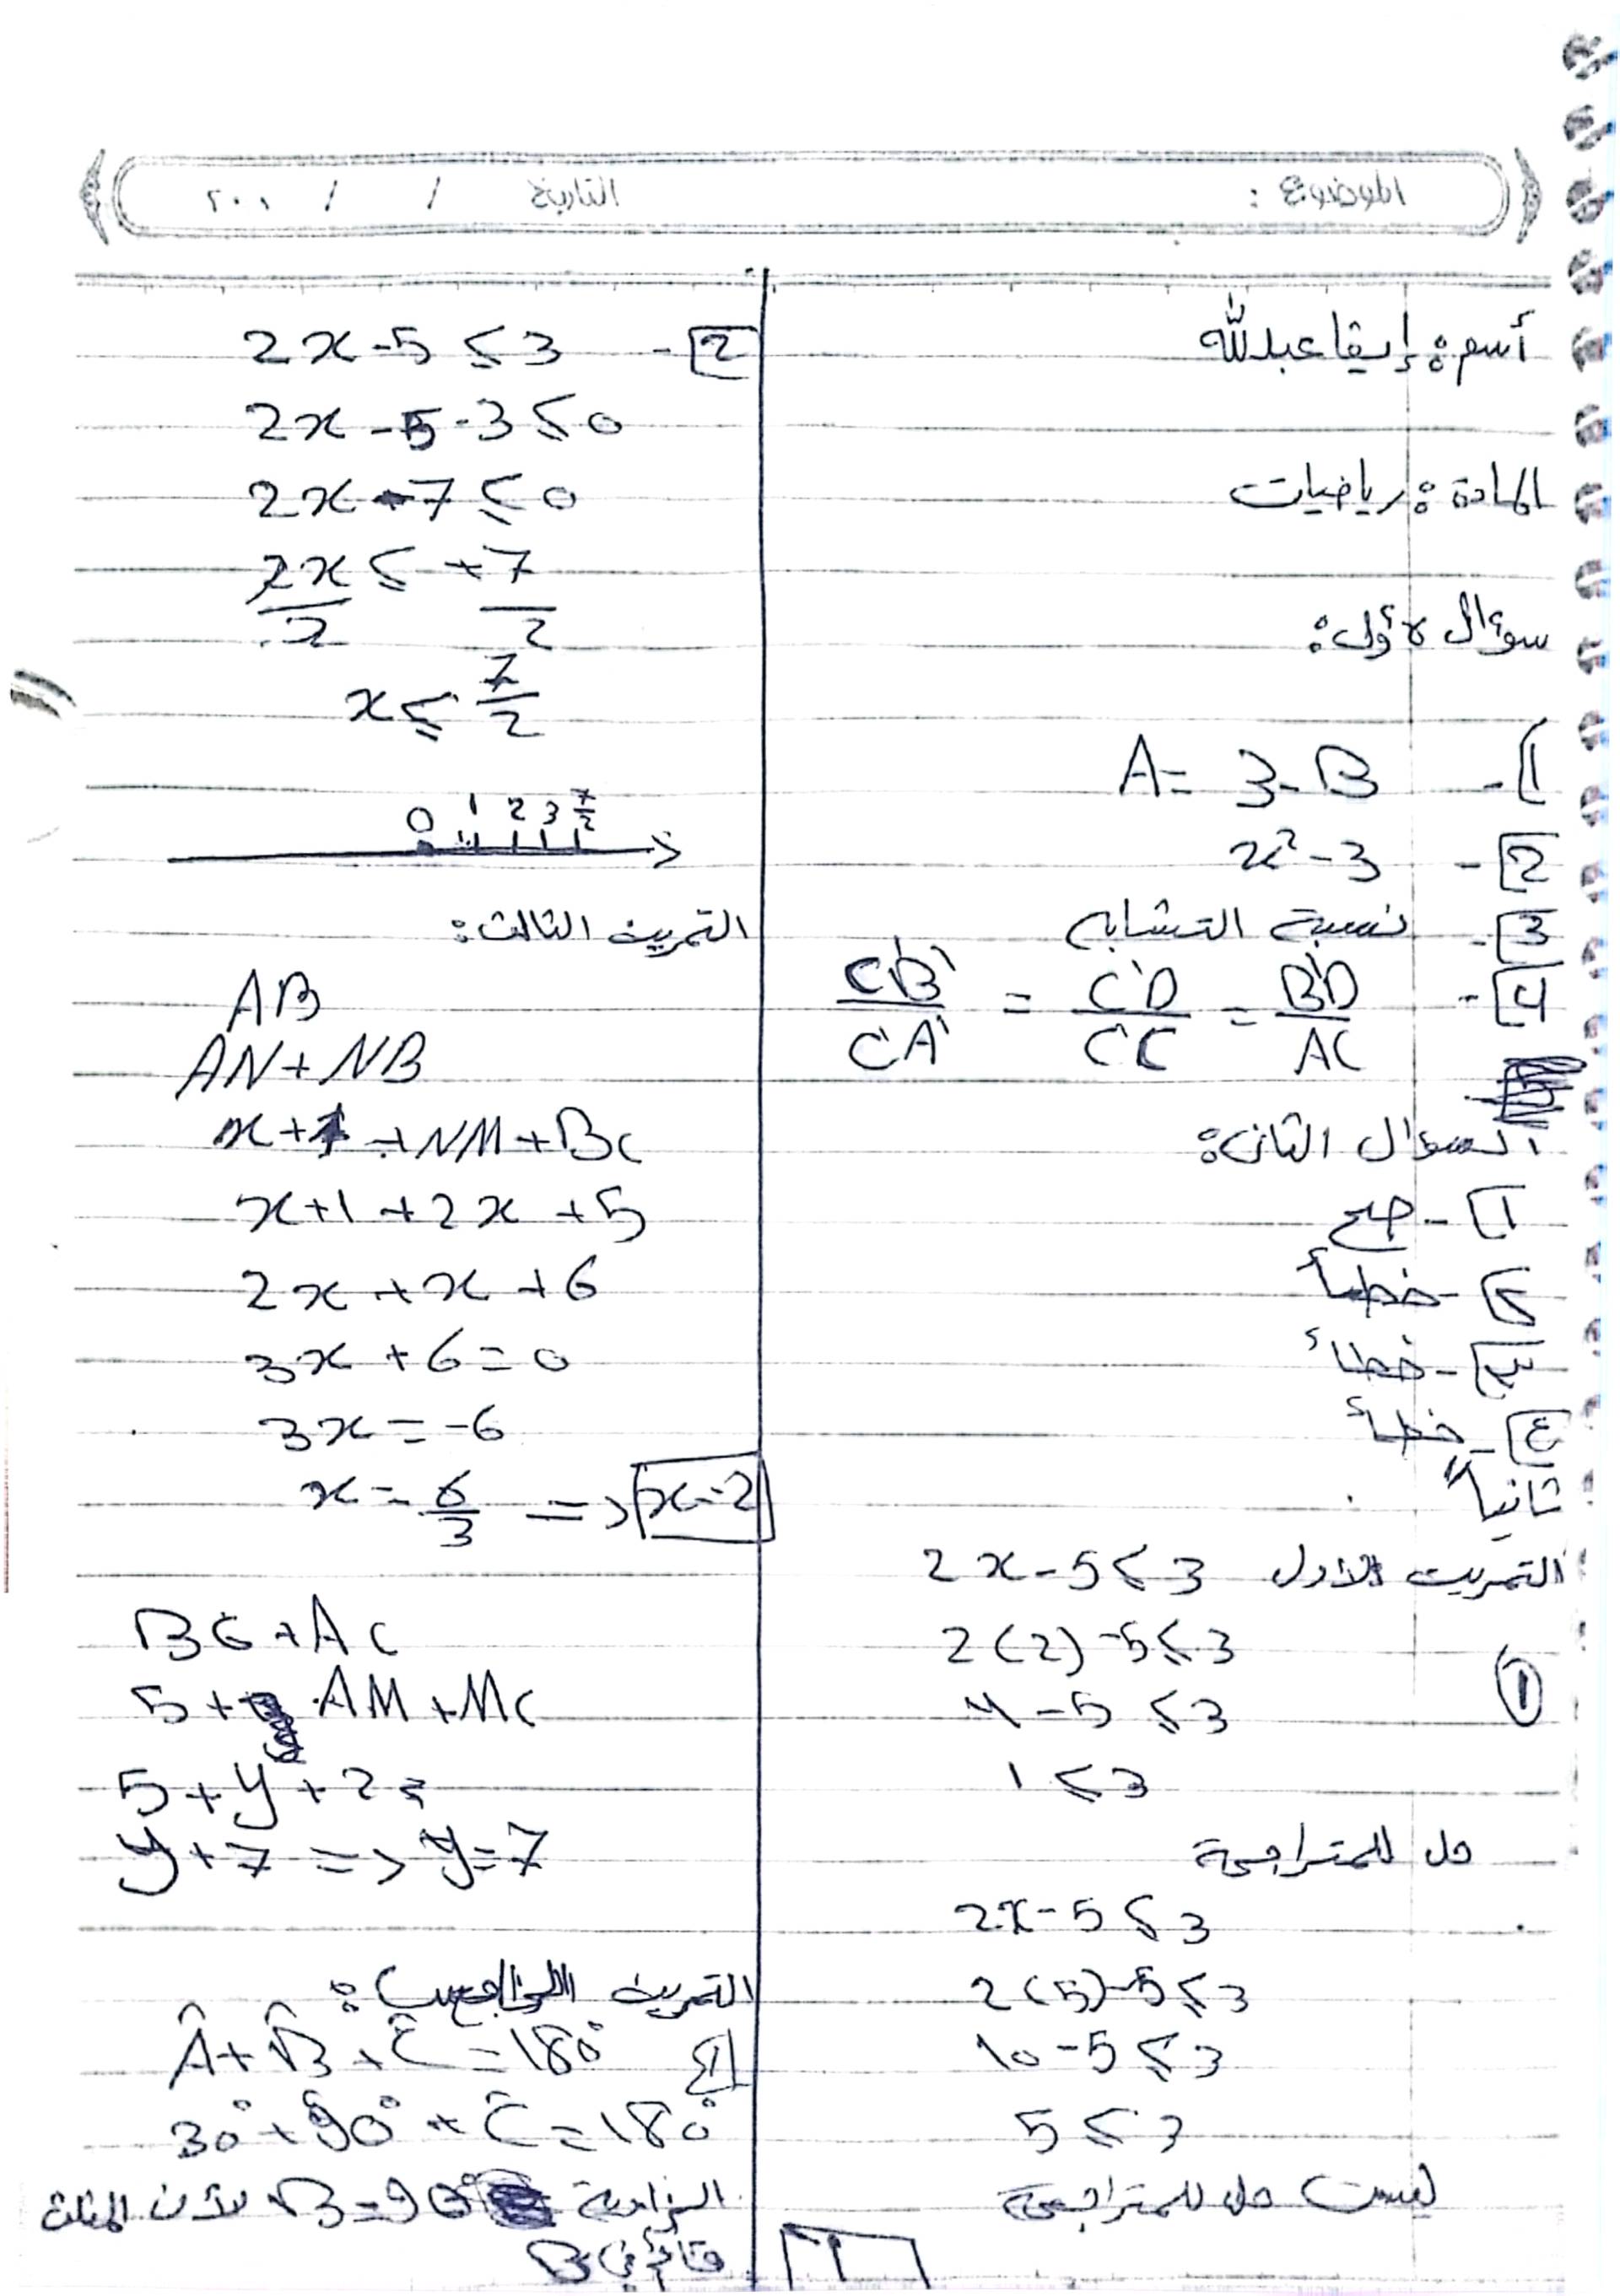 الموضوع :
التاريخ / / ٢٠٠
أسم : إيفا عبدالله
المادة : رياضيات
سوءال لأول :
1 - A = 3 - B
2 - x² - 3
3 - نسبة التشابه
4 - BD/AC = CD/CC = CB/CA
السؤال الثاني :
1 - صح
2 - خطأ
3 - خطأ
٤ - خطأ
ثانياً
التمرين الاول 2x - 5 ≤ 3
① 2(2) - 5 ≤ 3
4 - 5 ≤ 3
1 ≤ 3
حل للمتراجحة
2x - 5 ≤ 3
2(5) - 5 ≤ 3
10 - 5 ≤ 3
5 ≤ 3
ليست حل للمتراجحة
1
2 - 2x - 5 ≤ 3
2x - 5 - 3 ≤ 0
2x - 7 ≤ 0
2x/2 ≤ +7/2
x ≤ 7/2
0 1 2 3 7/2
التمرين الثالث :
AB
AN + NB
x + 1 + NM + BC
x + 1 + 2x + 5
2x + x + 6
3x + 6 = 0
3x = -6
x = 6/3 => x = 2
BC + AC
5 + AM + MC
5 + y + 2 =
y + 7 => y = 7
التمرين الخامس :
1 Â + B̂ + Ĉ = 180°
30° + 90° + Ĉ = 180°
الزاوية B = 90° لأن المثلث
قائم في B